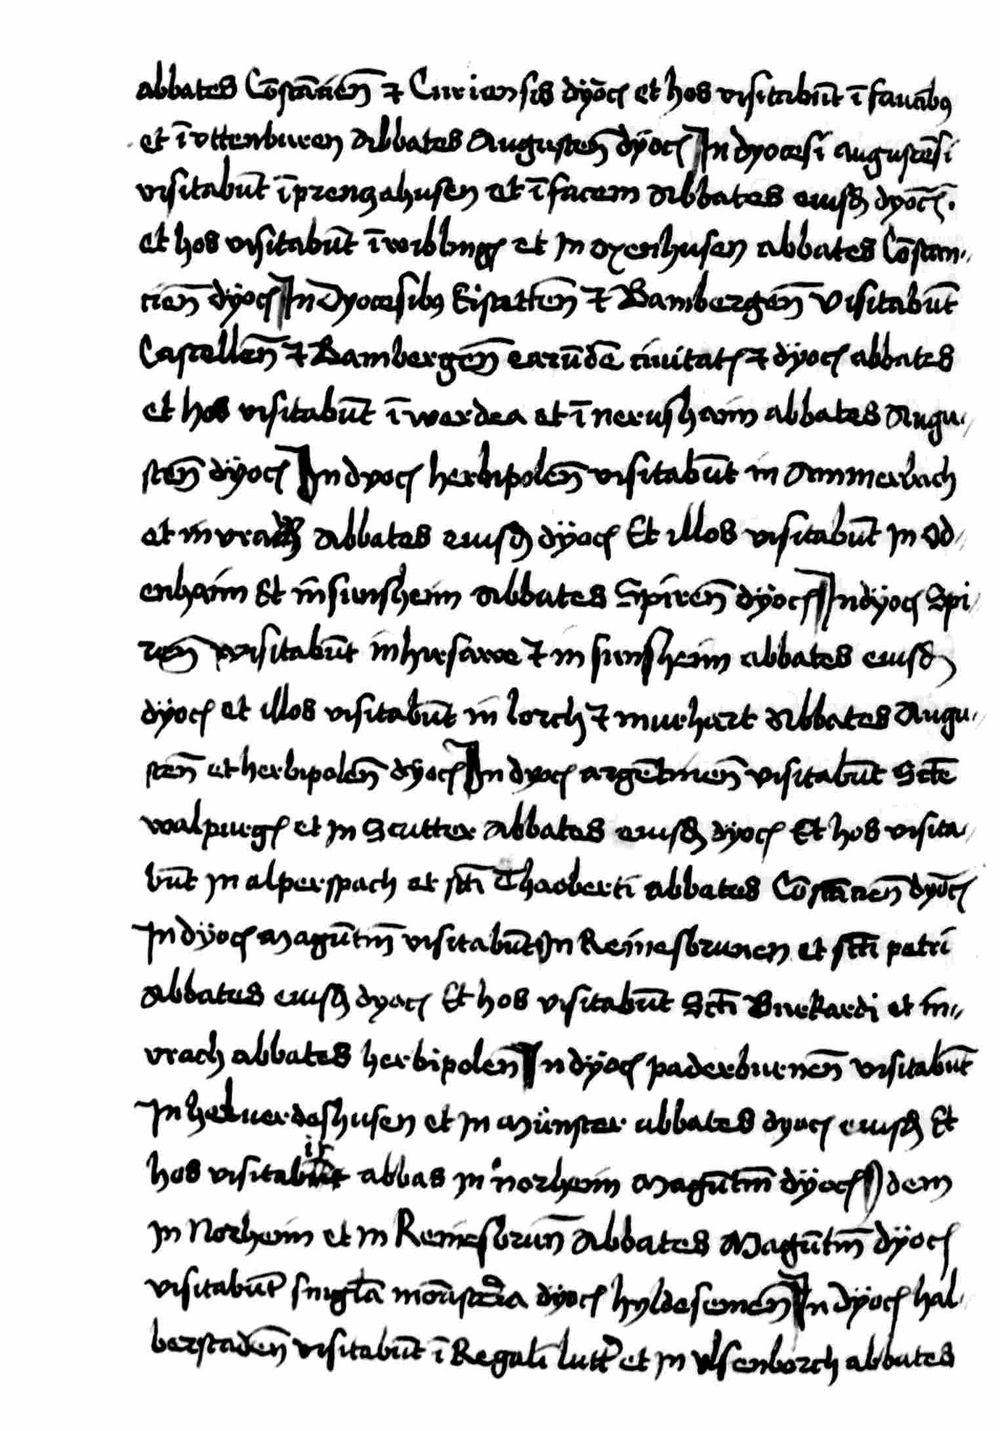 abbates Cōstācień et Curiensis dyoc et hos visitabūt ī faucibus
et ī vttenburen abbates Augusteń dyoc In dyocesi augustēsi
visitabūt ī prenczahusen et ī facem abbates eiusd dyoc.
et hos visitabūt ī wibling et In oxenhusen abbates Cōstan-
cień dyoc In Dyocesibus Eistetteń et Bambergeń Visitabūt
Castelleń et Bambergeń earūdē ciuitat et dyoc abbates
et hos visitabūt ī werdea et ī nerushaim abbates Augu-
steń dyoc In dyoc herbipoleń visitabūt in Ammerbach
et in vrach abbates eiusd dyoc Et illos visitabūt In od-
enhaim Et in sunsheim abbates Spireń dyoc In dyoc Spi-
reń visitabūt in hirsawe et in sunsheim abbates eiusd
dyoc et illos visitabūt in lorch et murhart abbates Augu-
steń et herbipoleń dyoc In dyoc argētineń visitabūt Scte
walpurg et In Scutter abbates eiusd dyoc Et hos visita-
būt In alperspach et scti Thaoberti abbates Cōstācień dyoc
In dyoc magūtiń visitabūt In Reinesbrunen et scti petri
abbates eiusd dyoc Et hos visitabūt Scti Burkardi et in-
vrach abbates herbipoleń In dyoc paderburneń visitabūt
In heluerdeshusen et In münster abbates dyoc eiusd Et
hos visitabit abbas In norheim magūtiń dyoc Idem
In Norheim et In Reinesbruń abbates Magūtiń dyoc
visitabūt singla monsteria dyoc hyldesemeń In dyoc hal-
berstadeń visitabūt ī Regali lutter et In ylsenborch abbates